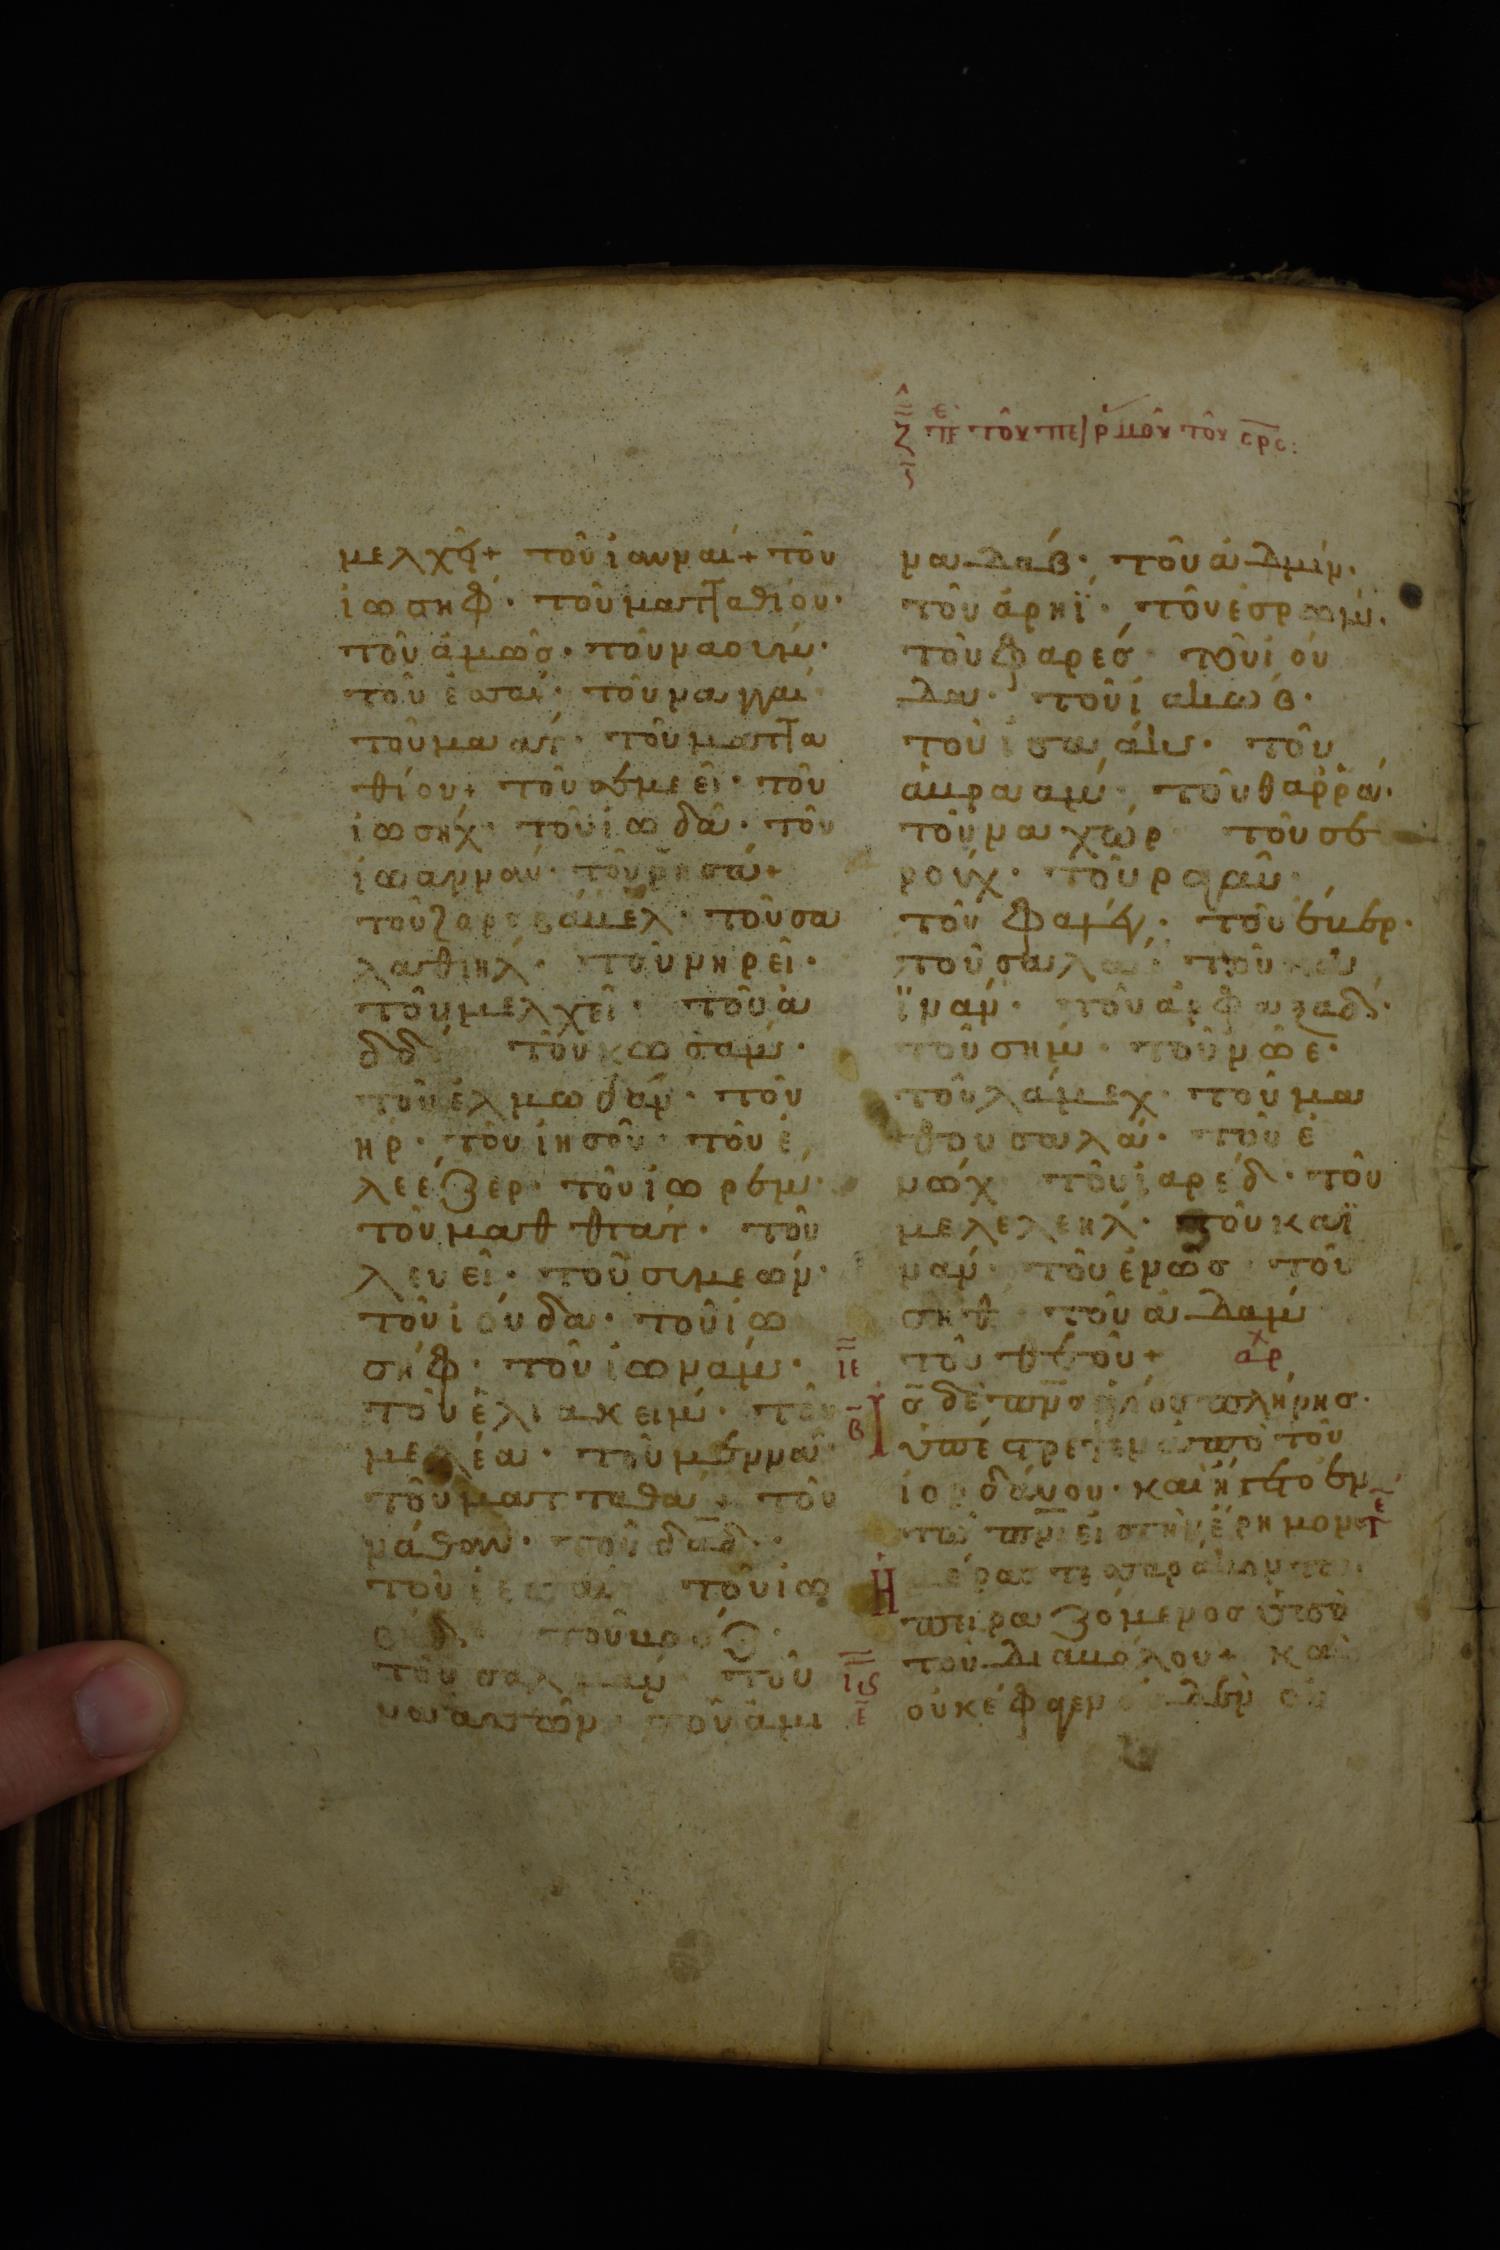 ζ πε τοῦ πειρασμοῦ τοῦ
μελχεί+ τοῦ ἰανναί+ τοῦ
ἰωσήφ· τοῦ ματταθίου·
τοῦ ἀμῶς· τοῦ ναούμ·
τοῦ ἐσλεί· τοῦ ναγγαί
τοῦ μαάτ· τοῦ ματτα
θίου+ τοῦ σεμεεῒ· τοῦ
ἰωσήχ· τοῦ ἰωδᾶ· τοῦ
ἰωαννάν· τοῦ ῥησά+
τοῦ ζοροβάβελ· τοῦ σα
λαθιήλ· τοῦ νηρεῖ·
τοῦ μελχεῖ· τοῦ ἀ
δδί τοῦ κωσάμ·
τοῦ ἐλμωδάμ· τοῦ
ἠρ· τοῦ ἰησοῦ· τοῦ ἐ
λεέζερ· τοῦ ἰωρείμ·
τοῦ ματθθάτ· τοῦ
λευεῖ· τοῦ σιμεών·
τοῦ ἰούδα· τοῦ ἰω
σήφ· τοῦ ἰωνάμ·
τοῦ ἐλιακείμ· τοῦ
μελέα· τοῦ μεννᾶ·
τοῦ ματταθά+ τοῦ
νάθαν· τοῦ δαδ·
τοῦ ἰεσσαί τοῦ ἰω
βήδ· τοῦ βοόζ·
τοῦ σαλμών τοῦ
ναασσών· τοῦ ἀμι
ναδάβ· τοῦ ἀδμίν·
τοῦ ἀρηῒ· τοῦ ἐσρώμ·
τοῦ φαρές· τοῦ ἰού
δα· τοῦ ἰακώβ·
τοῦ ἰσαάκ· τοῦ
ἀβραάμ· τοῦ θάρρα·
τοῦ ναχώρ τοῦ σε
ρούχ· τοῦ ραγαῦ·
τοῦ φαλέγ· τοῦ ἔβερ·
τοῦ σαλά· τοῦ κα
ϊνάν· τοῦ ἀρφαξάδ·
τοῦ σήμ· τοῦ νῶε·
τοῦ λάμεχ· τοῦ μα
θουσάλα· τοῦ ἐ
νώχ τοῦ ἰαρέδ· τοῦ
μελελεήλ· τοῦ καϊ
νάν· τοῦ ἐνῶς· τοῦ
σήθ τοῦ ἀδάμ
ιε τοῦ θεοῦ+ ἀρχ
β Ις δὲ πνς ἁγίου πλήρης·
ὑπέστρεψεν ἀπὸ τοῦ
ἰορδάνου· καὶ ἤγετο ἐν
τῶ πνι εἰς τὴν ἔρημον
Ἡμέρας τεσσαράκοντα
πειραζόμενος ὑπὸ
ις τοῦ διαβόλου+ καὶ
ε οὐκ ἔφαγεν οὐδὲν